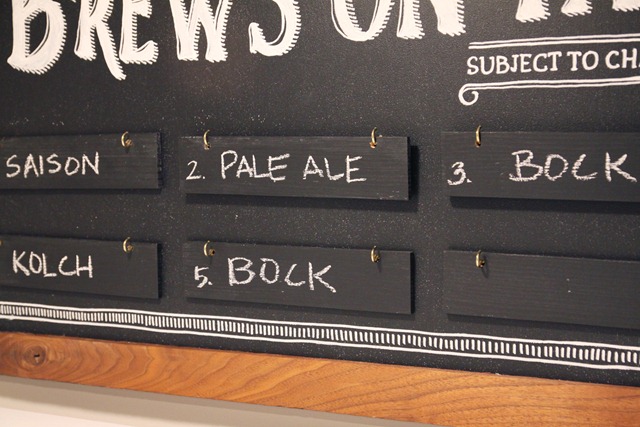 BREWS ON
SUBJECT TO CH
SAISON
2. PALE ALE
3. BOCK
KOLCH
5. BOCK